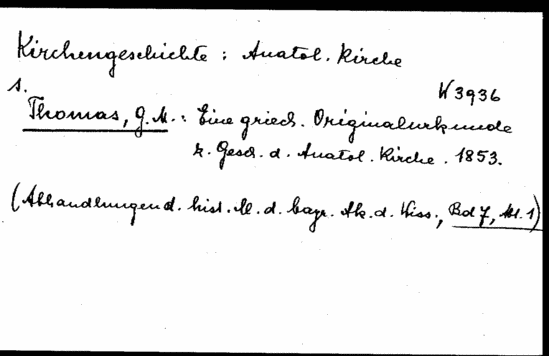 Kirchengeschichte : Anatol. Kirche
s.
W 3936
Thomas, G. M. : Eine griech. Originalurkunde
z. Gesch. d. Anatol. Kirche. 1853.
(Abhandlungen d. hist. Kl. d. bayr. Ak. d. Wiss., Bd 7, Abt. 1)